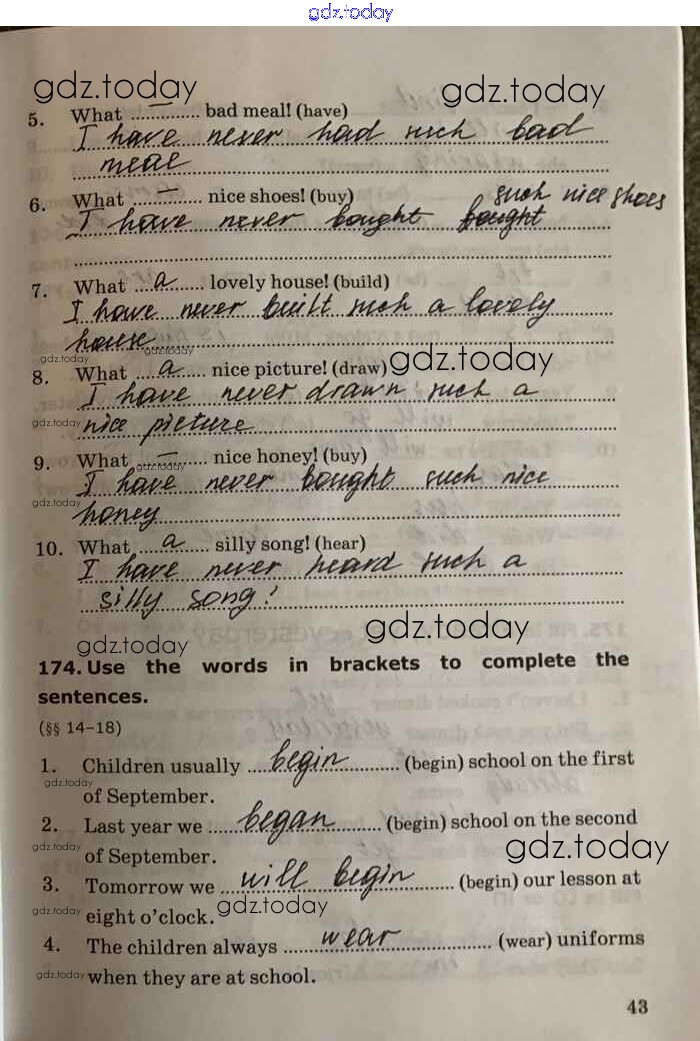 gdz.today
gdz.today gdz.today
5. What ....—.... bad meal! (have)
I have never had such bad
meal
6. What ....—.... nice shoes! (buy) such nice shoes
I have never bought bought
7. What ...a... lovely house! (build)
I have never built such a lovely
house
gdz.today gdz.today gdz.today
8. What ...a... nice picture! (draw)
I have never drawn such a
gdz.today nice picture
9. What ....—.... nice honey! (buy)
gdz.today
I have never bought such nice
gdz.today honey
10. What ...a... silly song! (hear)
I have never heard such a
silly song!
gdz.today gdz.today
174. Use the words in brackets to complete the
sentences.
(§§ 14–18)
1. Children usually ... begin ... (begin) school on the first
gdz.today
of September.
2. Last year we ... began ... (begin) school on the second
gdz.today gdz.today
of September.
3. Tomorrow we ... will begin ... (begin) our lesson at
gdz.today gdz.today
eight o'clock.
4. The children always ... wear ... (wear) uniforms
gdz.today when they are at school.
43